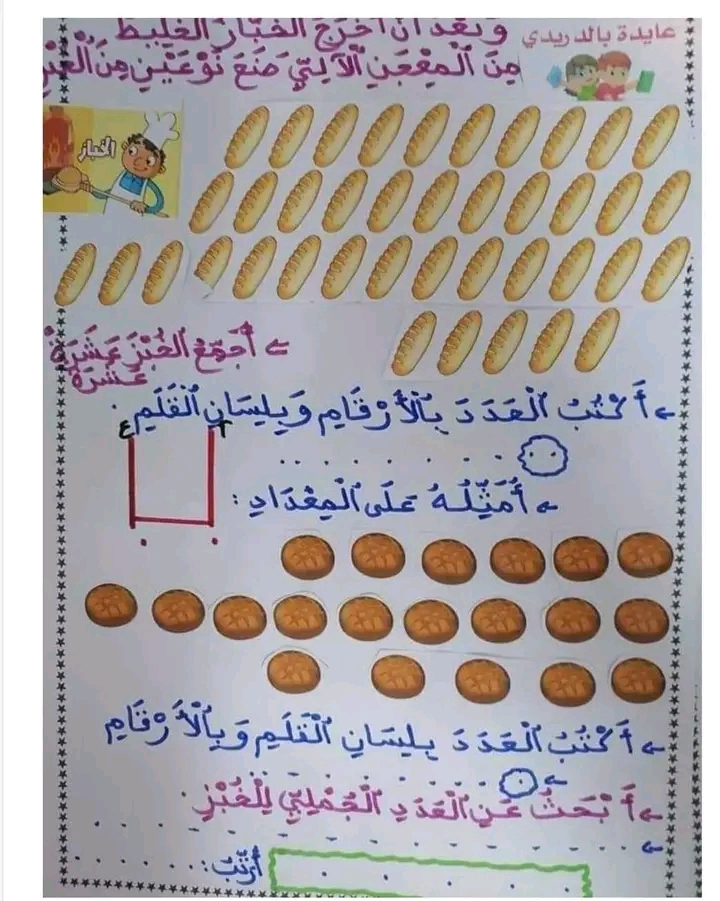 عايدة بالدريدي
وَبَعْدَ أَنْ أَخْرَجَ الْخَبَّازُ الْخَلِيطَ
مِنَ الْمِعْجَنِ الْآلِيِّ صَنَعَ نَوْعَيْنِ مِنَ
الخباز
← أُجَمِّعُ الْخُبْزَ عَشَرَةً
عَشَرَةً
← أَكْتُبُ الْعَدَدَ بِالْأَرْقَامِ وَبِلِسَانِ الْقَلَمِ.
ع
← أُمَثِّلُهُ عَلَى الْمِعْدَادِ:
← أَكْتُبُ الْعَدَدَ بِلِسَانِ الْقَلَمِ وَبِالْأَرْقَامِ
← أَبْحَثُ عَنِ الْعَدَدِ الْجُمْلِيِّ لِلْخُبْزِ.
أُرَتِّبُ: